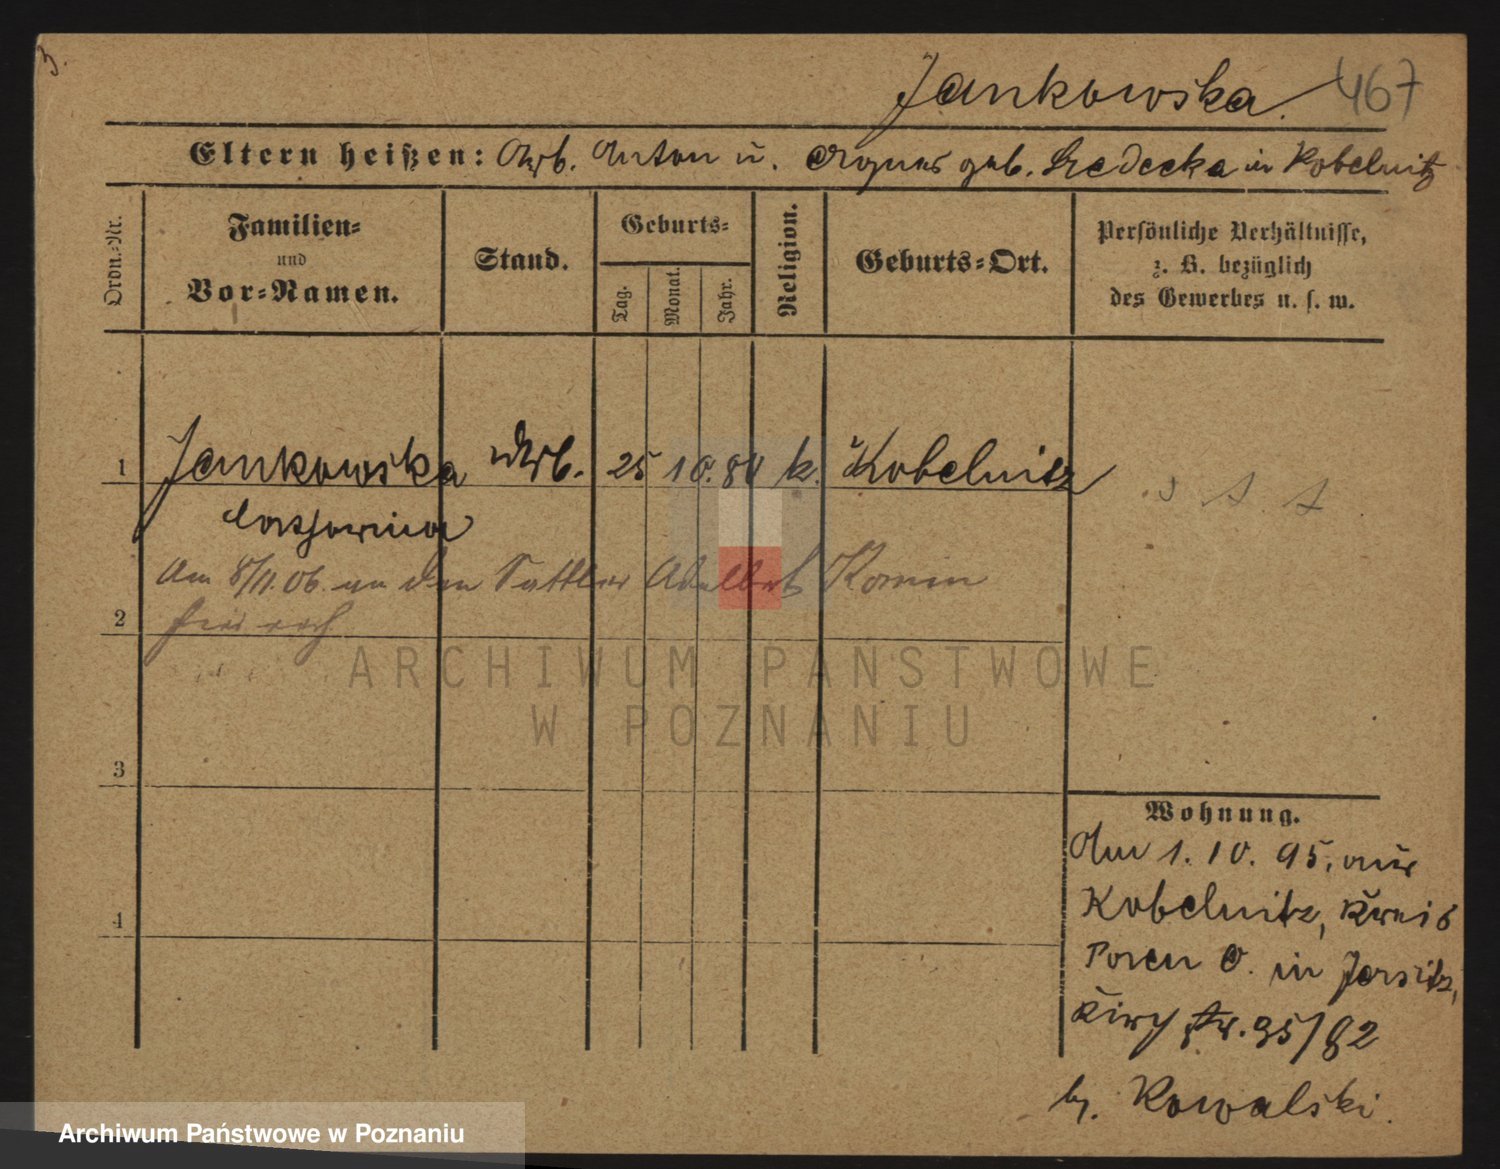 Jankowska. 467
Eltern heißen: Arb. Anton u. Agnes geb. in Kobelnitz
Ordn.-Nr.
Familien-
und
Vor-Namen.
Stand.
Geburts-
Tag.
Monat.
Jahr.
Religion.
Geburts-Ort.
Persönliche Verhältnisse,
z. B. bezüglich
des Gewerbes u. s. w.
1 Jankowska Arb. 25 10. k. Kobelnitz
Am 8/11.06. an den Sattler Adalbert
2
ARCHIWUM PAŃSTWOWE
W POZNANIU
3
Wohnung.
Am 1. 10. 95. aus
4 Kobelnitz, Kreis
Posen O. in Jersitz,
Kirchstr.
b. Kowalski.
Archiwum Państwowe w Poznaniu